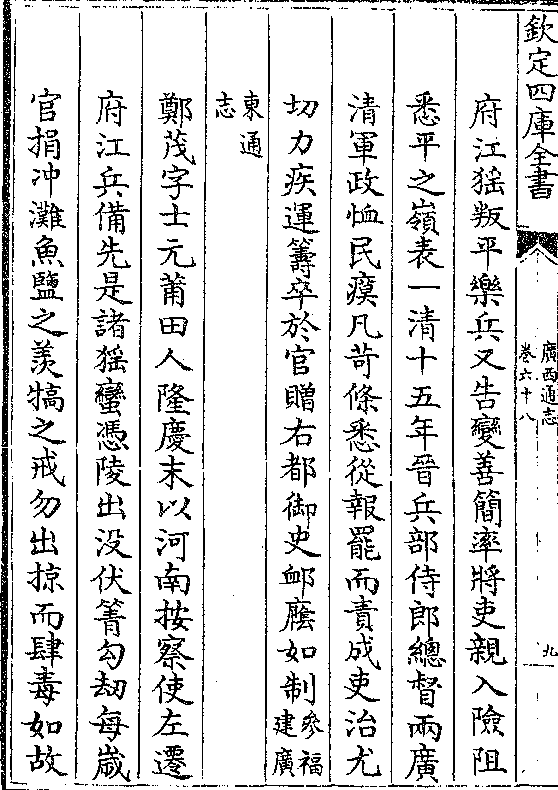 欽定四庫全書
廣西通志
卷六十八
九
府江猺叛平樂兵又告變善簡率將吏親入險阻
悉平之嶺表一清十五年晉兵部侍郎總督兩廣
清軍政恤民瘼凡苛條悉從報罷而責成吏治尤
切力疾運籌卒於官贈右都御史卹廕如制參福
建廣
東通
志
鄭茂字士元莆田人隆慶末以河南按察使左遷
府江兵備先是諸猺蠻憑陵出没伏箐勾劫每歲
官捐冲灘魚鹽之羨犒之戒勿出掠而肆毒如故